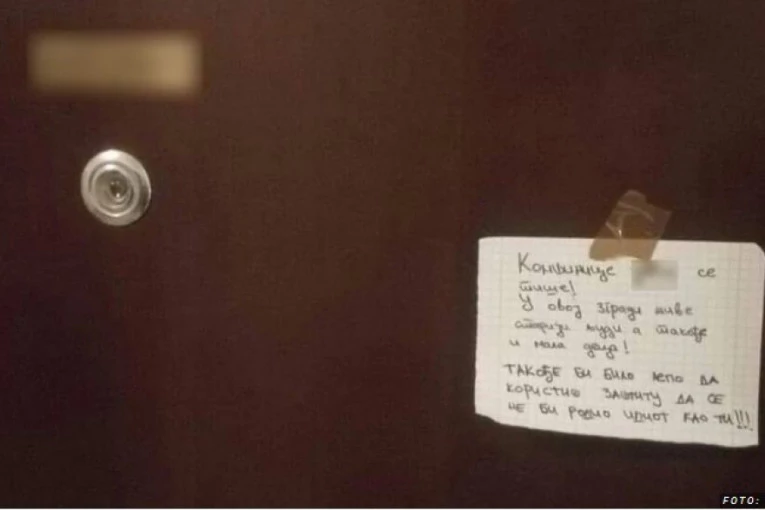 Комшинице се
тише!
У овој згради живе
старији људи а такође
и мала деца!
ТАКОЂЕ БИ БИЛО ЛЕПО ДА
КОРИСТИШ ЗАШТИТУ ДА СЕ
НЕ БИ РОДИО ИДИОТ КАО ТИ!!!
FOTO: